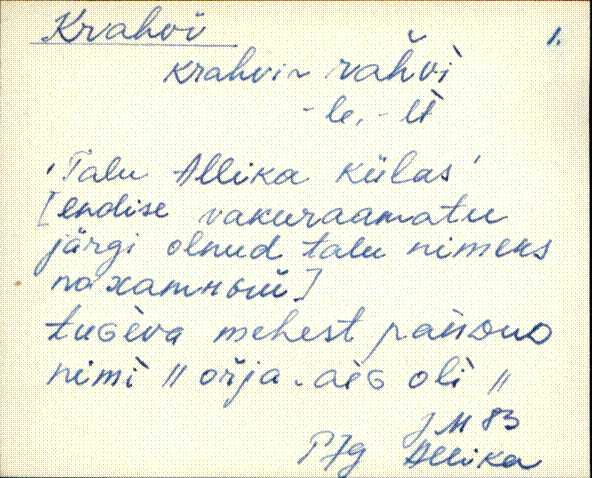 Krahvi 1.
krahvi ~ rahvì
- le, - lt
'Talu Allika külas'
[endise vakuraamatu
järgi olnud talu nimeks
похатный]
tuGèva mehest pańDuD
nimì " oŕja-aiG olì "
JM 83
PJg Allika